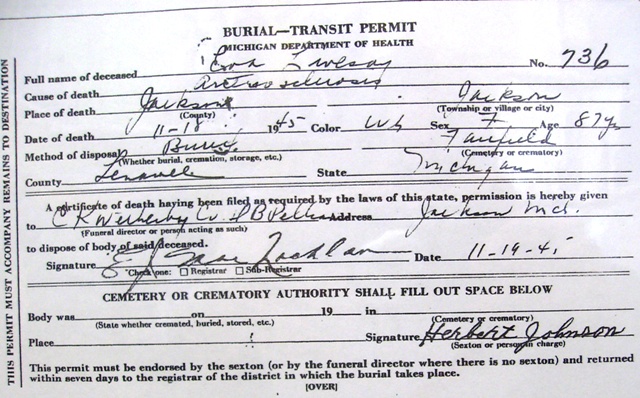 BURIAL—TRANSIT PERMIT
MICHIGAN DEPARTMENT OF HEALTH
Full name of deceased Eva No. 736
Cause of death
Place of death Jackson Jackson
(County) (Township or village or city)
Date of death 11-18 1945 Color Wh Sex F Age 87 yr
Method of disposal Burial Fairfield
(Whether burial, cremation, storage, etc.) (Cemetery or crematory)
County Lenawee State Michigan
A certificate of death having been filed as required by the laws of this state, permission is hereby given
to C R Address Jackson Mich.
(Funeral director or person acting as such)
to dispose of body of said deceased.
Signature Date 11-19-45
Check one: ☐ Registrar ☐ Sub-Registrar
CEMETERY OR CREMATORY AUTHORITY SHALL FILL OUT SPACE BELOW
Body was on 19 in
(State whether cremated, buried, stored, etc.) (Cemetery or crematory)
Place Signature Herbert Johnson
(Sexton or person in charge)
This permit must be endorsed by the sexton (or by the funeral director where there is no sexton) and returned
within seven days to the registrar of the district in which the burial takes place.
[OVER]
THIS PERMIT MUST ACCOMPANY REMAINS TO DESTINATION